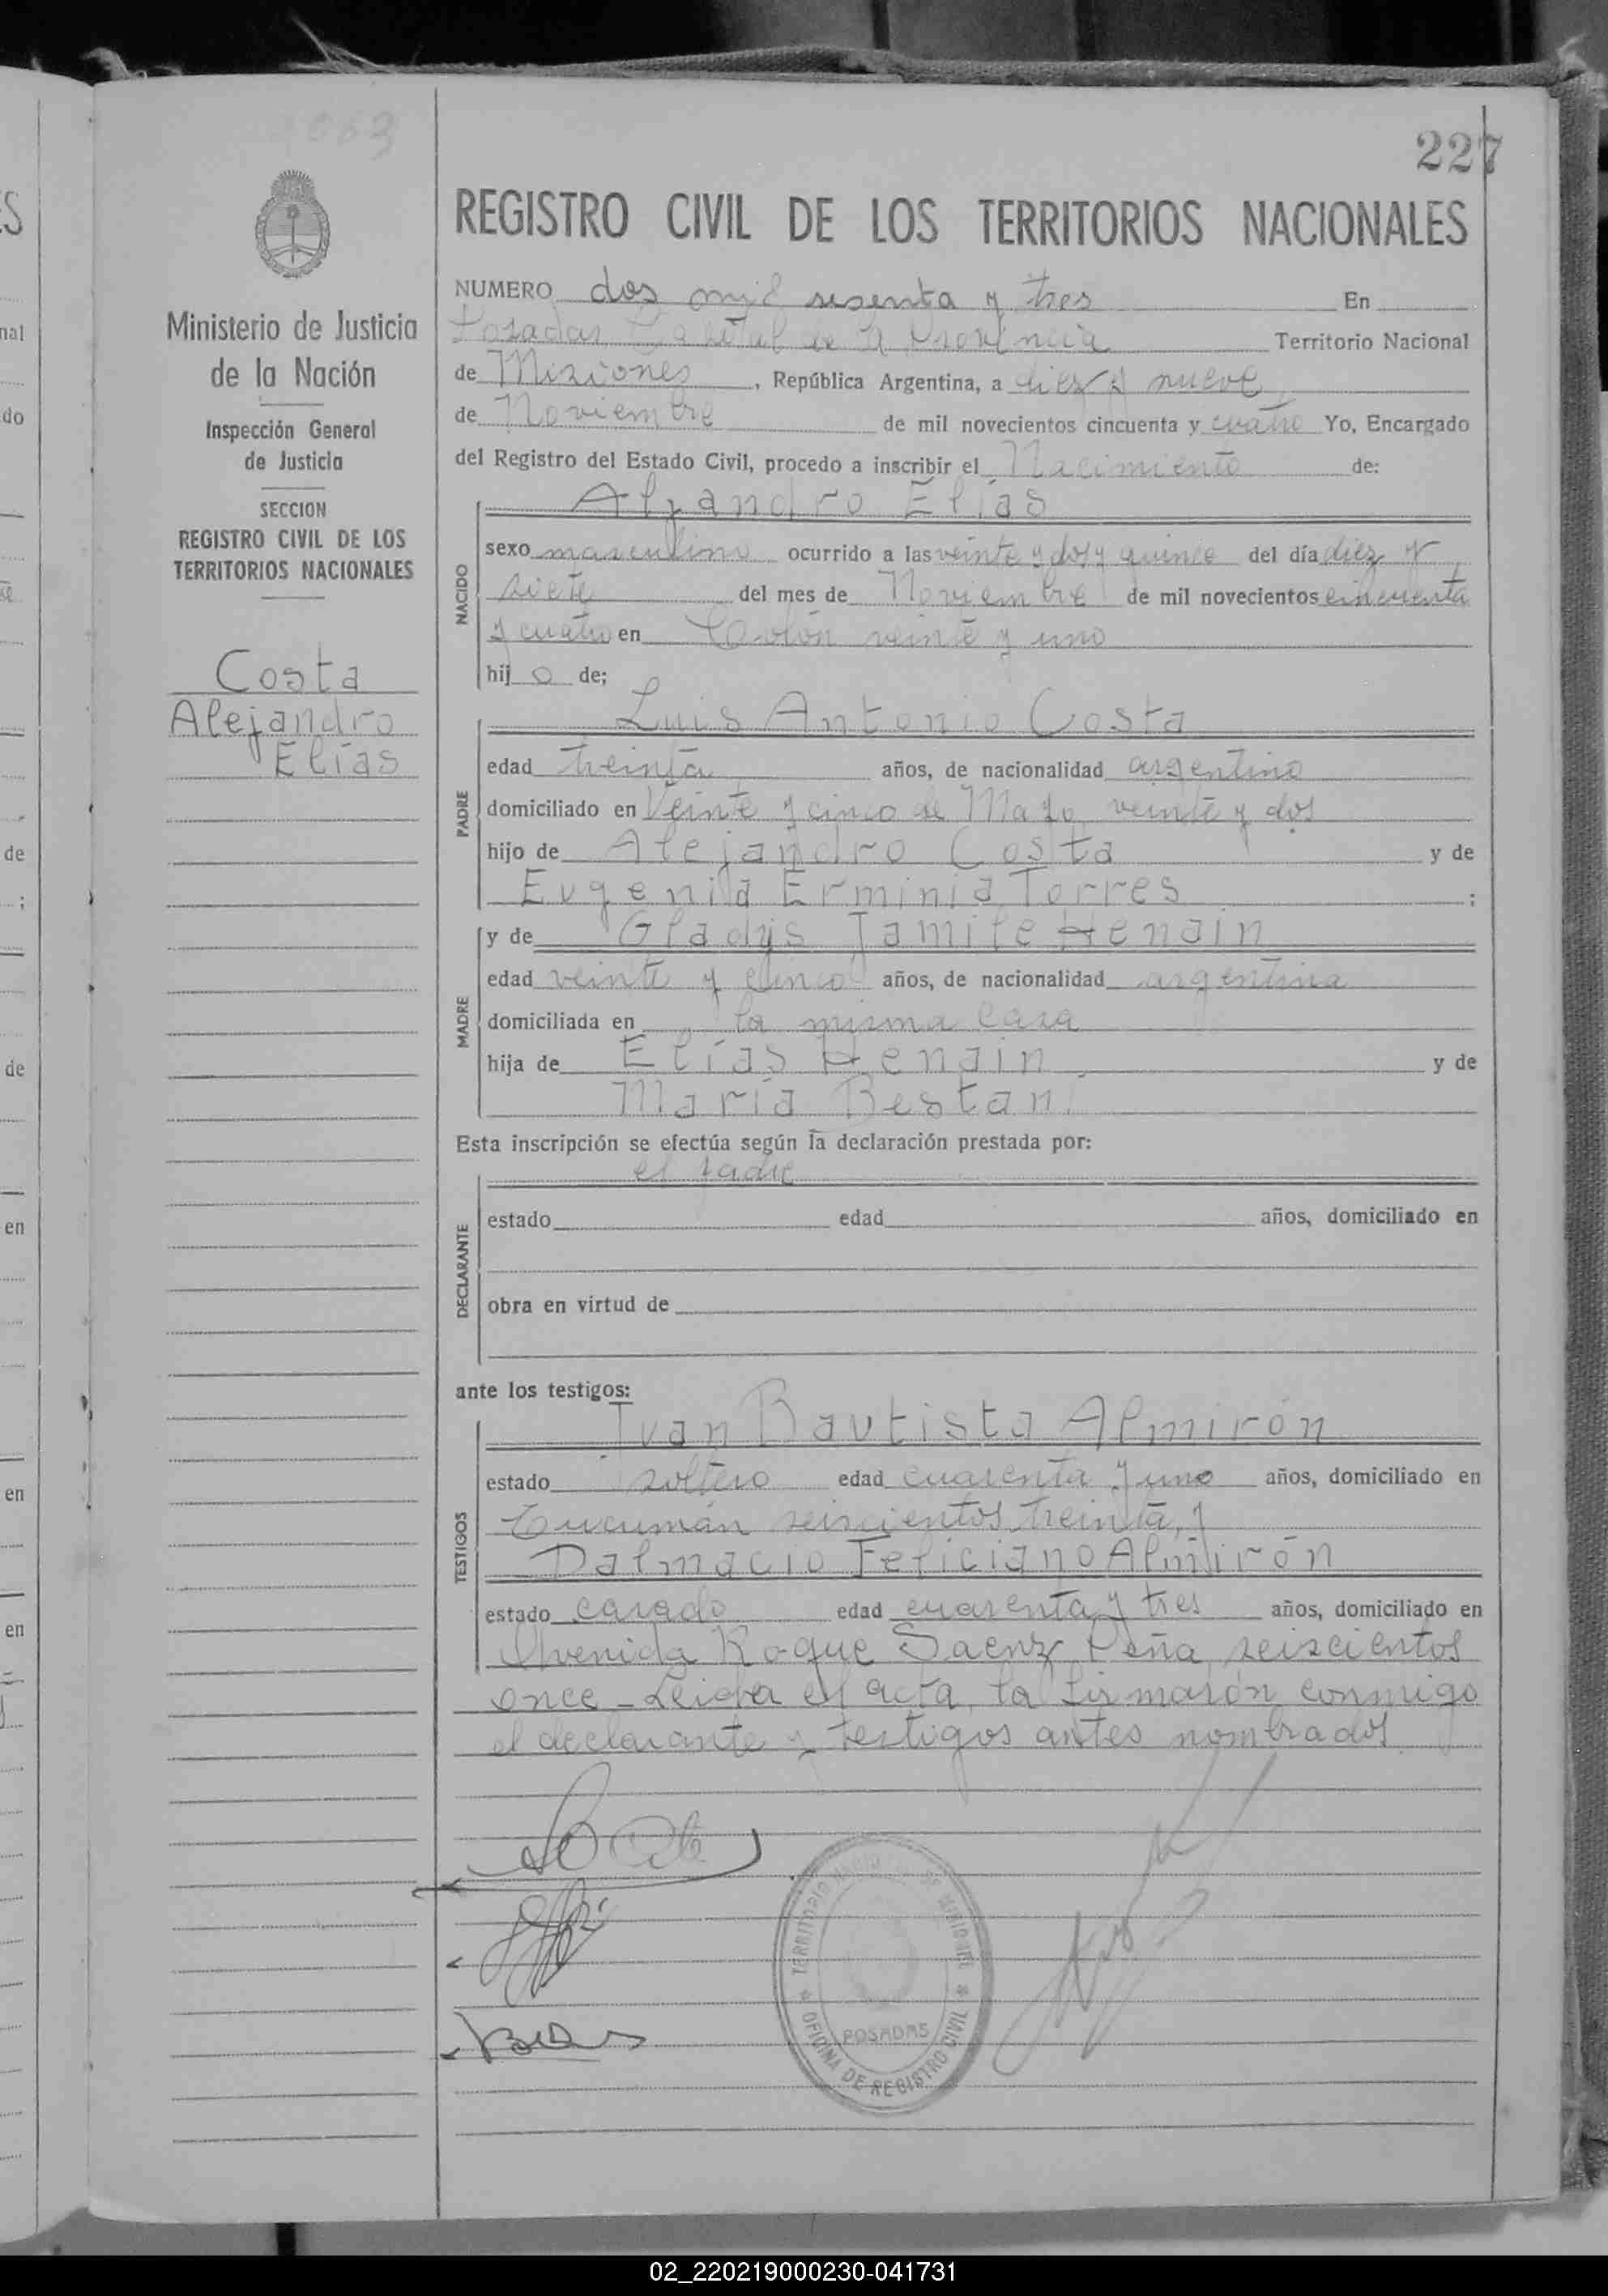 227
REGISTRO CIVIL DE LOS TERRITORIOS NACIONALES
Ministerio de Justicia
de la Nación
Inspección General
de Justicia
SECCION
REGISTRO CIVIL DE LOS
TERRITORIOS NACIONALES
Costa
Alejandro
Elías
NUMERO dos mil sesenta y tres En
Posadas Capital de la Provincia Territorio Nacional
de Misiones, República Argentina, a diez y nueve
de Noviembre de mil novecientos cincuenta y cuatro Yo, Encargado
del Registro del Estado Civil, procedo a inscribir el Nacimiento de:
NACIDO
Aljandro Elías
sexo masculino ocurrido a las veinte y dos y quince del día diez y
siete del mes de Noviembre de mil novecientos cincuenta
y cuatro en Colón veinte y uno
hijo de;
PADRE
Luis Antonio Costa
edad treinta años, de nacionalidad argentino
domiciliado en Veinte y cinco de Mayo veinte y dos
hijo de Alejandro Costa y de
Eugenia Erminia Torres ;
MADRE
y de Gladys Jamile Henain
edad veinte y cinco años, de nacionalidad argentina
domiciliada en la misma casa
hija de Elías Henain y de
María Bestan.
Esta inscripción se efectúa según la declaración prestada por:
DECLARANTE
el padre
estado edad años, domiciliado en
obra en virtud de
ante los testigos:
TESTIGOS
Juan Bautista Almirón
estado soltero edad cuarenta y uno años, domiciliado en
Tucumán seiscientos treinta, y
Dalmacio Feliciano Almirón
estado casado edad cuarenta y tres años, domiciliado en
Avenida Roque Saenz Peña seiscientos
once - Leida el acta, la firmarón conmigo
el declarante y testigos antes nombrados
TERRITORIO NACIONAL DE MISIONES
POSADAS
OFICINA DE REGISTRO CIVIL
ES
nal
do
de
;
de
en
en
en
02_220219000230-041731